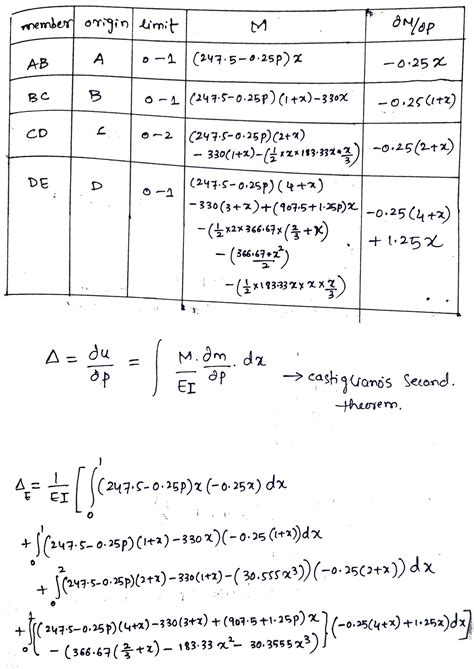 member origin limit M ∂M/∂P
AB A 0-1 (247.5-0.25P)x -0.25x
BC B 0-1 (247.5-0.25P)(1+x)-330x -0.25(1+x)
CD C 0-2 (247.5-0.25P)(2+x) -0.25(2+x)
- 330(1+x)-(1/2 × x × 183.33x × x/3)
DE D 0-1 (247.5-0.25P)(4+x) -0.25(4+x)
-330(3+x)+(907.5+1.25P)x + 1.25x
-(1/2×2×366.67×(2/3+x)
-(366.67*x²/2)
-(1/2×183.33x × x × x/3)
Δ = ∂u/∂p = ∫ M/EI . ∂m/∂p . dx
→ castiglianos Second.
theorem.
Δ_E = 1/EI [ ∫₀¹ (247.5-0.25P)x(-0.25x) dx
+ ∫₀¹ (247.5-0.25P)(1+x)-330x)(-0.25(1+x))dx
+ ∫₀² (247.5-0.25P)(2+x)-330(1+x)-(30.555x³))(-0.25(2+x)) dx
+ ∫₀¹ {(247.5-0.25P)(4+x)-330(3+x)+(907.5+1.25P)x
-(366.67(2/3+x)-183.33x²-30.3555x³)} (-0.25(4+x)+1.25x)dx]